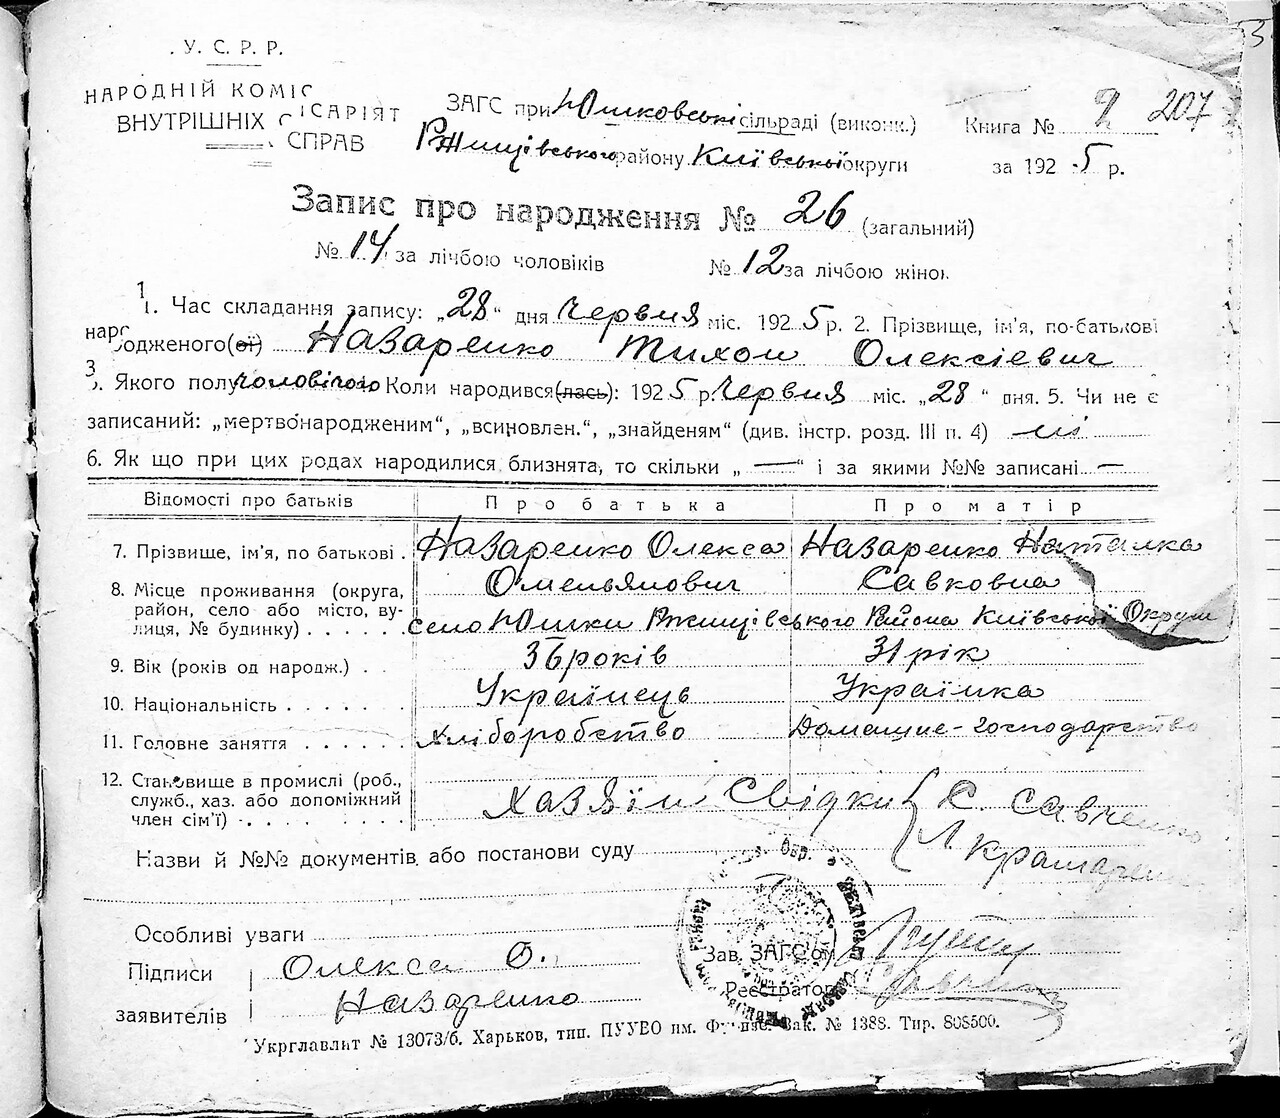 У. С. Р. Р.
НАРОДНІЙ КОМІСАРІЯТ
ВНУТРІШНІХ СПРАВ
ЗАГС при Юшковські сільраді (виконк.)
Ржищівського району Київської округи
Книга № 9 207
за 1925 р.
Запис про народження № 26 (загальний)
№ 14 за лічбою чоловіків № 12 за лічбою жінок.
1. Час складання запису: „28“ дня Червня міс. 1925 р. 2. Прізвище, ім'я, по-батькові
народженого(ої) Назаренко Тихон Олексієвич
3. Якого полу чоловічого Коли народився(лась): 1925 р. Червня міс. „28“ дня. 5. Чи не є
записаний: „мертвонародженим“, „всиновлен.“, „знайденям“ (див. інстр. розд. III п. 4) ні
6. Як що при цих родах народилися близнята, то скільки „—“ і за якими №№ записані —
Відомості про батьків Про батька Про матір
7. Прізвище, ім'я, по батькові . Назаренко Олекса Назаренко Наталка
Омельянович Савковна
8. Місце проживання (округа,
район, село або місто, ву-
лиця, № будинку) . . . . . село Юшки Ржищівського Района Київської Округи
9. Вік (років од народж.) . . 36 років 31 рік
10. Національність . . . . . . Українець Українка
11. Головне заняття . . . . . . хліборобство Домашнє-господарство
12. Становище в промислі (роб.,
служб., хаз. або допоміжний
член сім'ї) . . . . . . . . Хазяїн Свідки { С. Савченко
Л Крамаренко
Назви й №№ документів або постанови суду
Особливі уваги
Підписи Олекса О.
заявителів Назаренко
Зав. ЗАГС'ом
Реєстратор
Укрглавліт № 13073/б. Харьков, тип. ПУУВО им. Фрунзе. Зак. № 1388. Тир. 808500.